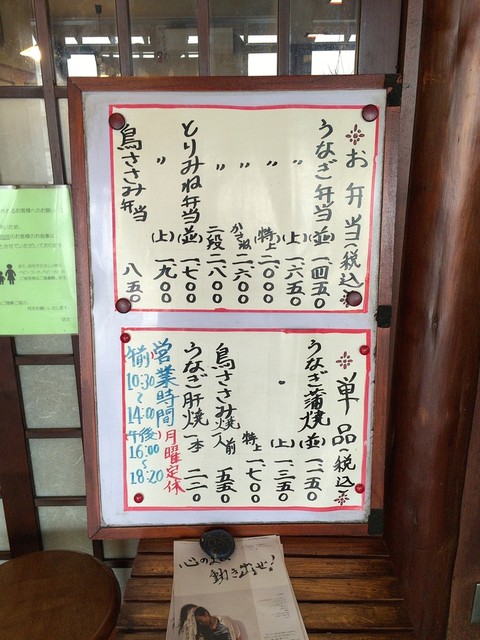 お弁当(税込)
うなぎ弁当(並)一四五〇
〃(上)一六五〇
〃(特上)二〇〇〇
〃かさね二六〇〇
〃二段二八〇〇
とりみね弁当(並)一七〇〇
〃(上)一九〇〇
鳥ささみ弁当 八五〇
単品(税込)
うなぎ蒲焼(並)一一五〇
〃(上)一三五〇
特上一七〇〇
鳥ささみ焼一人前 五五〇
うなぎ肝焼一本 二二〇
営業時間 月曜定休
午前10:30~14:00
午後16:00~18:20
心のままに
動き出せ!